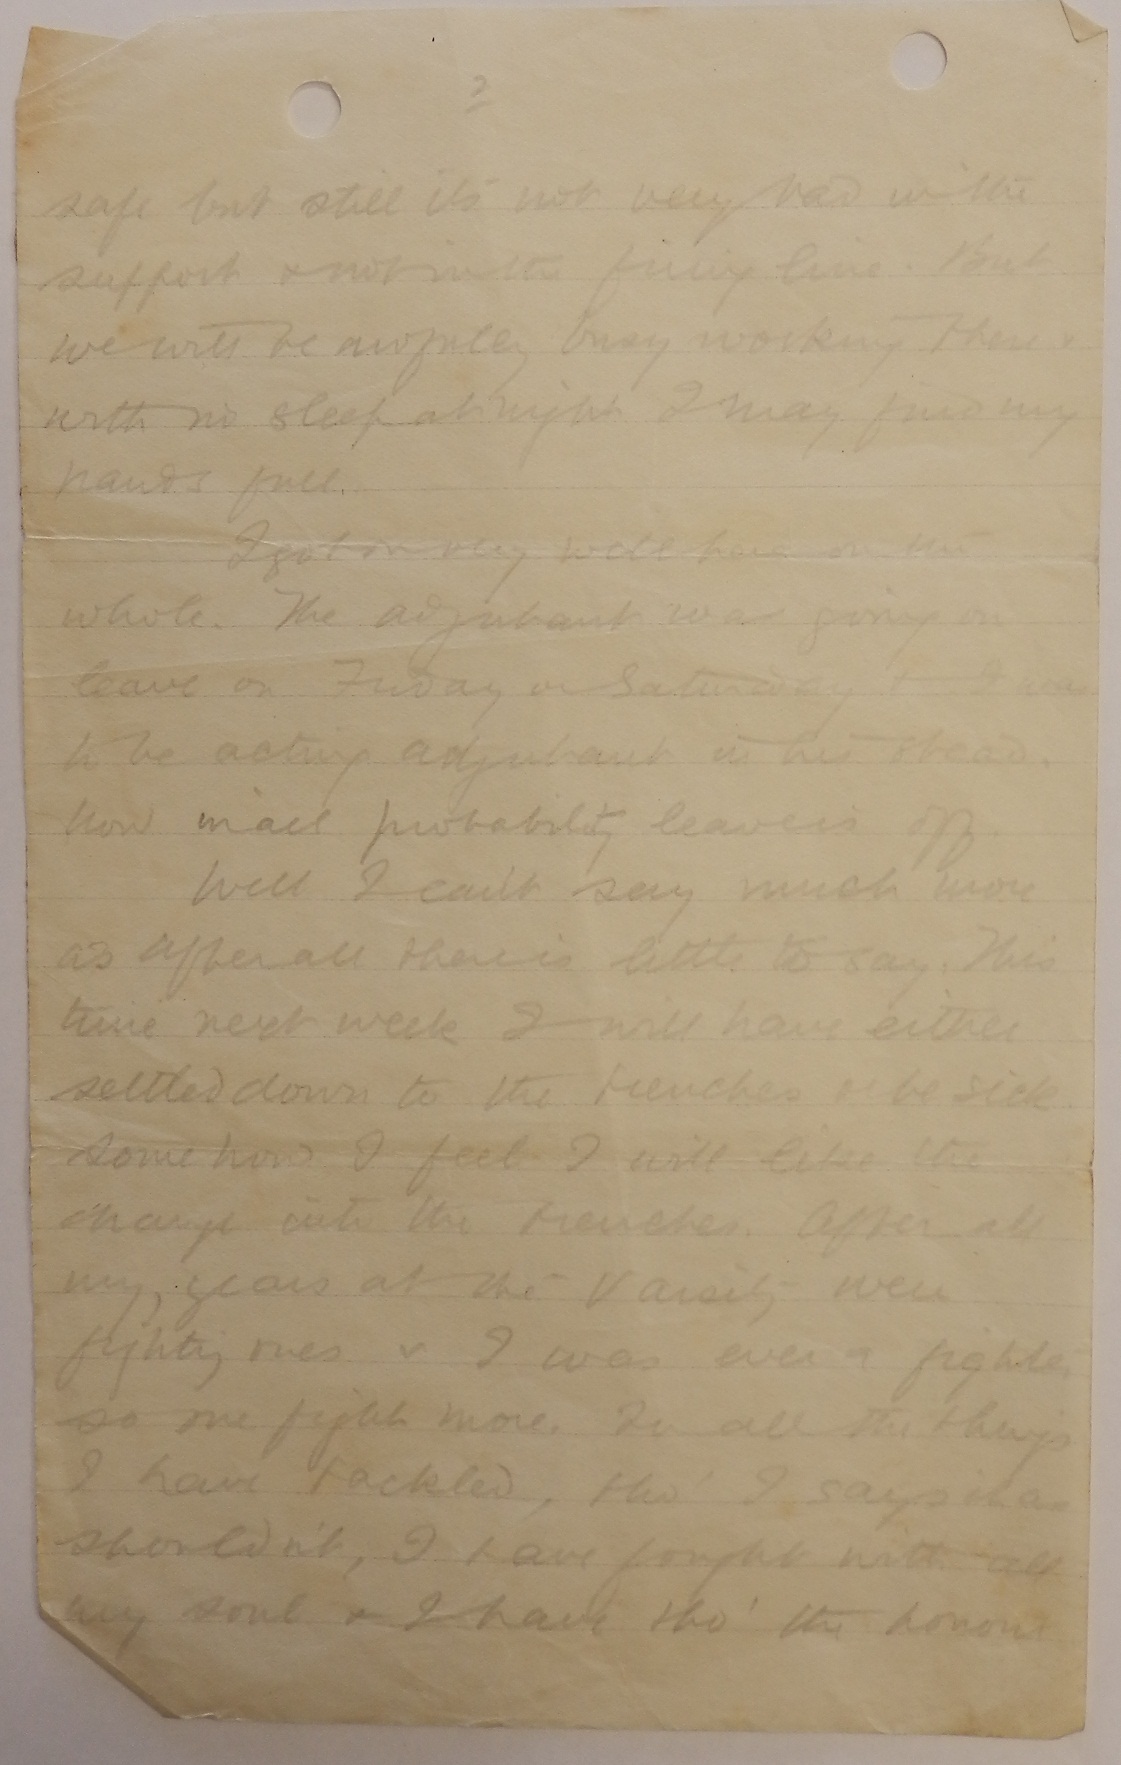 2
safe but still its not very bad in the
support & not in the firing line. But
we will be awfully busy working there &
with no sleep at night I may find my
hands full.
I got on very well here on the
whole. The adjutant was going on
leave on Friday or Saturday & I was
to be acting adjutant in his stead.
Now in all probability leave is off.
Well I can't say much more
as after all there is little to say. This
time next week I will have either
settled down to the trenches or be sick.
Somehow I feel I will like the
change into the trenches. After all
my years at the Varsity were
fighting ones & I was ever a fighter
so one fight more. In all the things
I have tackled, tho' I say
shouldn't, I have fought with all
my soul & I have tho' the honour